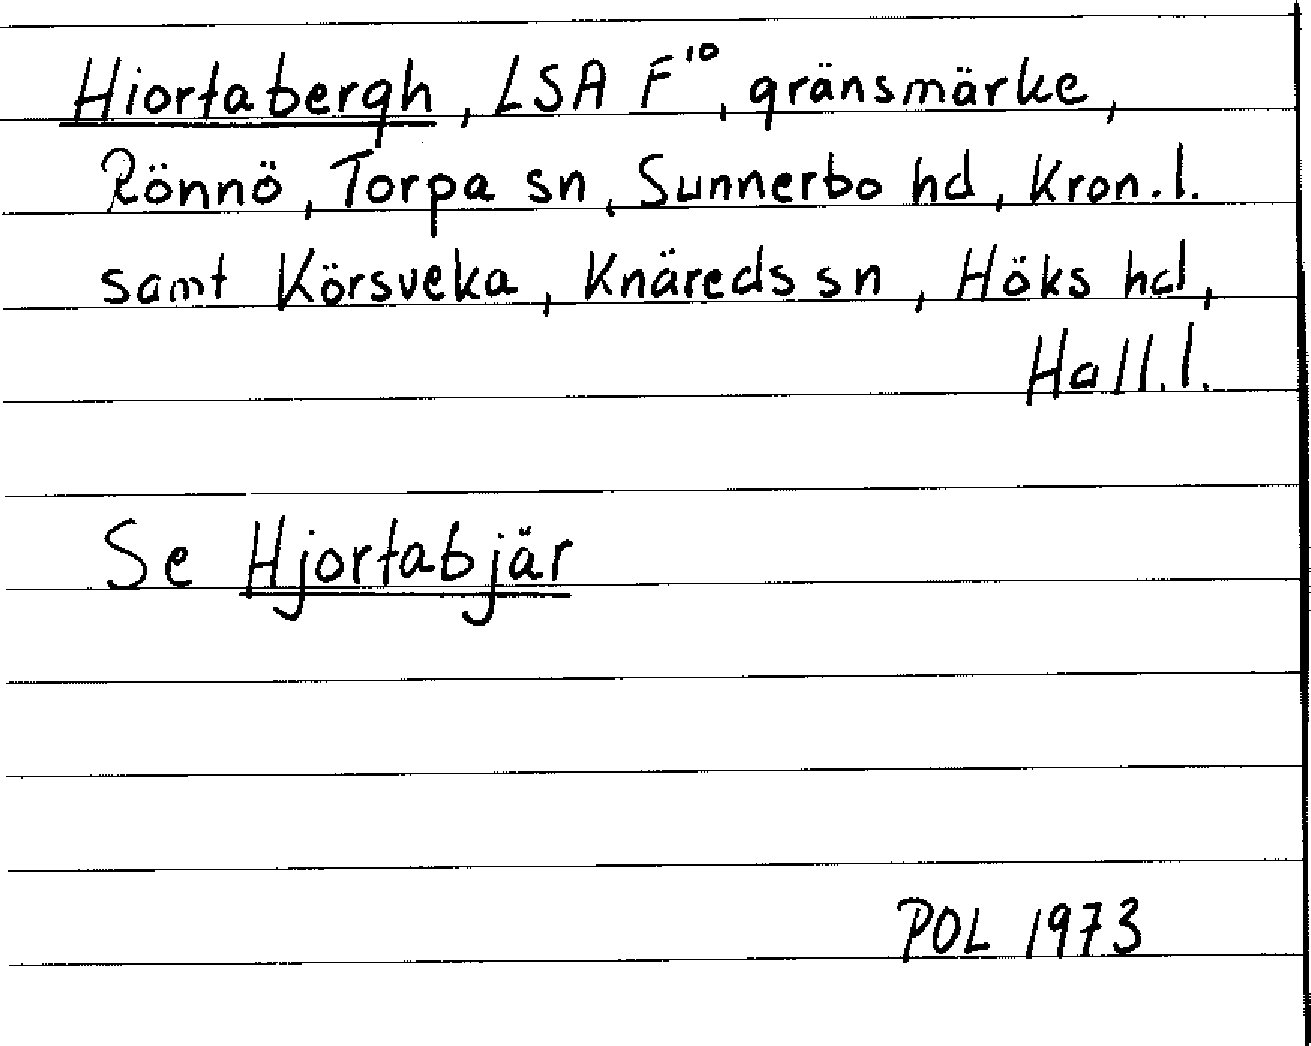 Hiortabergh, LSA F¹⁰, gränsmärke,
Rönnö, Torpa sn, Sunnerbo hd, Kron.l.
samt Körsveka, Knäreds sn, Höks hd,
Hall.l.
Se Hjortabjär
POL 1973